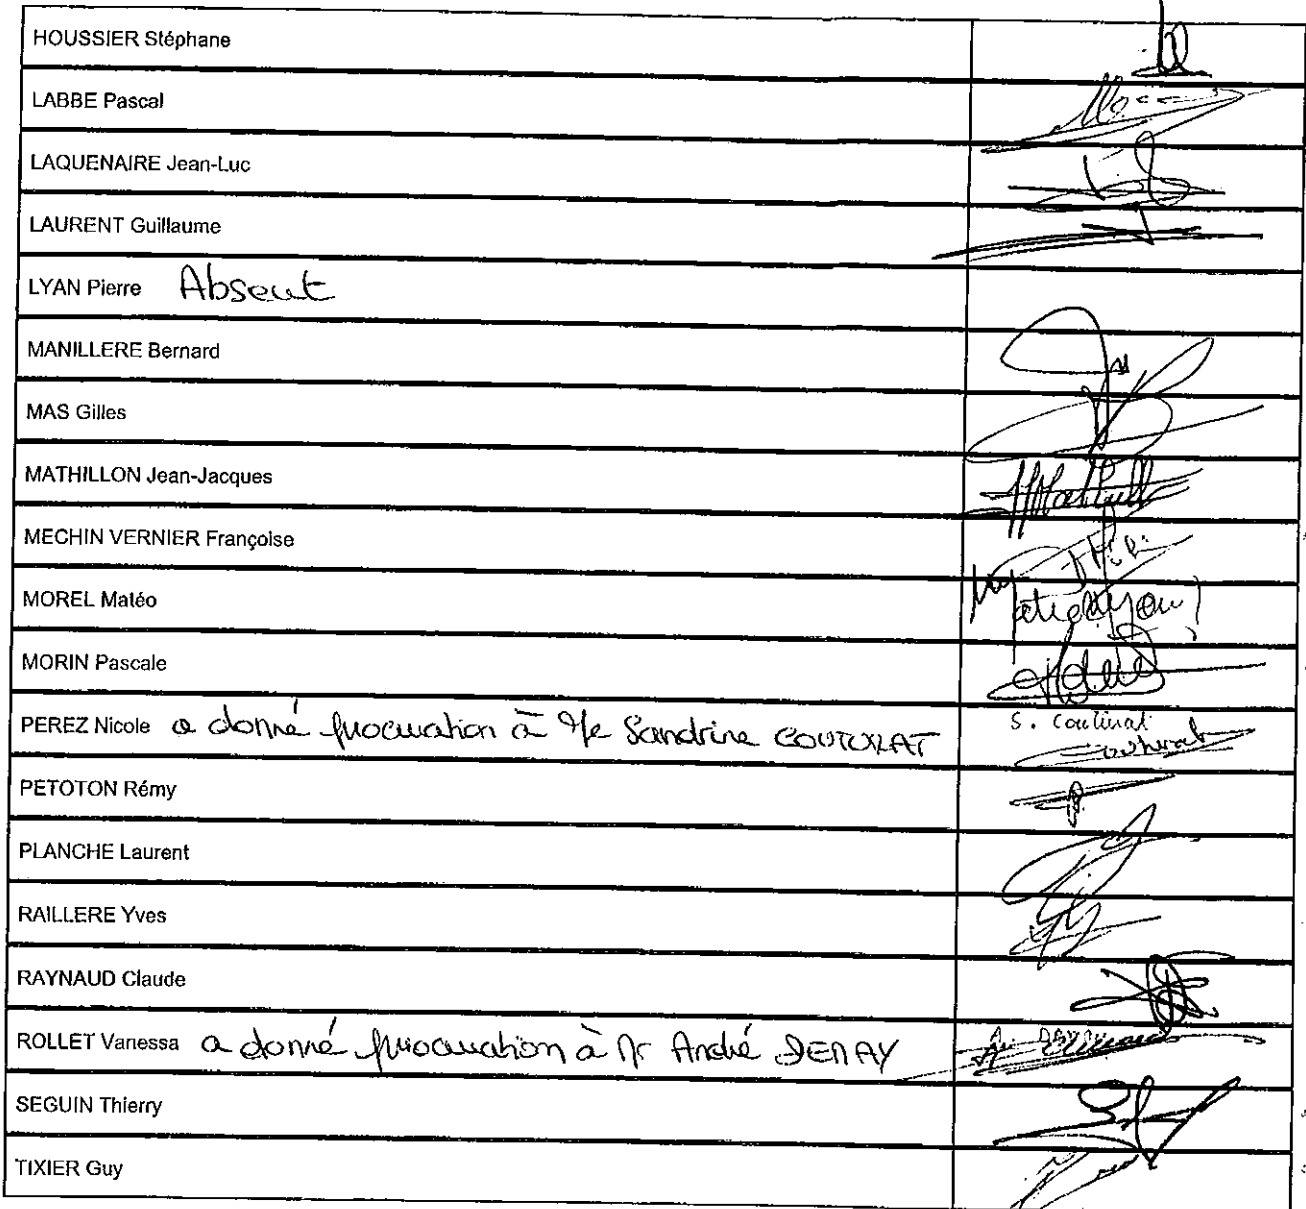 HOUSSIER Stéphane
LABBE Pascal
LAQUENAIRE Jean-Luc
LAURENT Guillaume
LYAN Pierre Absent
MANILLERE Bernard
MAS Gilles
MATHILLON Jean-Jacques
MECHIN VERNIER Françoise
MOREL Matéo
MORIN Pascale
PEREZ Nicole a donné procuration à Me Sandrine COUTURAT S. Couturat
PETOTON Rémy
PLANCHE Laurent
RAILLERE Yves
RAYNAUD Claude
ROLLET Vanessa a donné procuration à Mr André DENAY
SEGUIN Thierry
TIXIER Guy